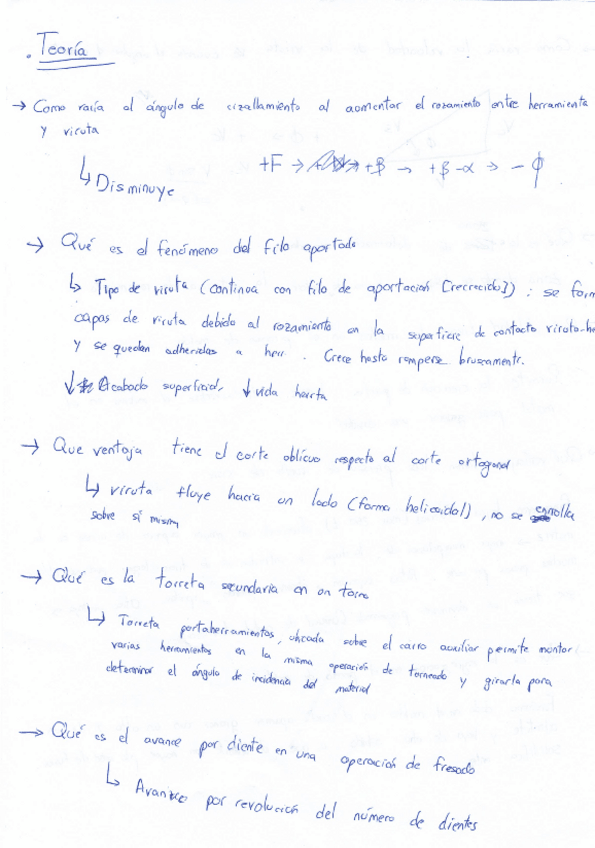 . Teoría
→ Como varía el ángulo de cizallamiento al aumentar el rozamiento entre herramienta
y viruta
↳ Disminuye
+F → → +β → +β-α → -ϕ
→ Qué es el fenómeno del filo aportado
↳ Tipo de viruta (continua con filo de aportación [recrecido]) : se form
capas de viruta debido al rozamiento en la superficie de contacto viruta-he
y se quedan adheridas a herr . Crece hasta romperse bruscamente.
↓ Acabado superficial, ↓ vida herrta
→ Que ventaja tiene el corte oblicuo respecto al corte ortogonal
↳ viruta fluye hacia un lado (forma helicoidal), no se enrolla
sobre sí misma
→ Qué es la torreta secundaria en un torno
↳ Torreta portaherramientas, ubicada sobre el carro auxiliar permite montar
varias herramientas en la misma operación de torneado y girarla para
determinar el ángulo de incidencia del material
→ Qué es el avance por diente en una operación de fresado
↳ Avance por revolución del número de dientes